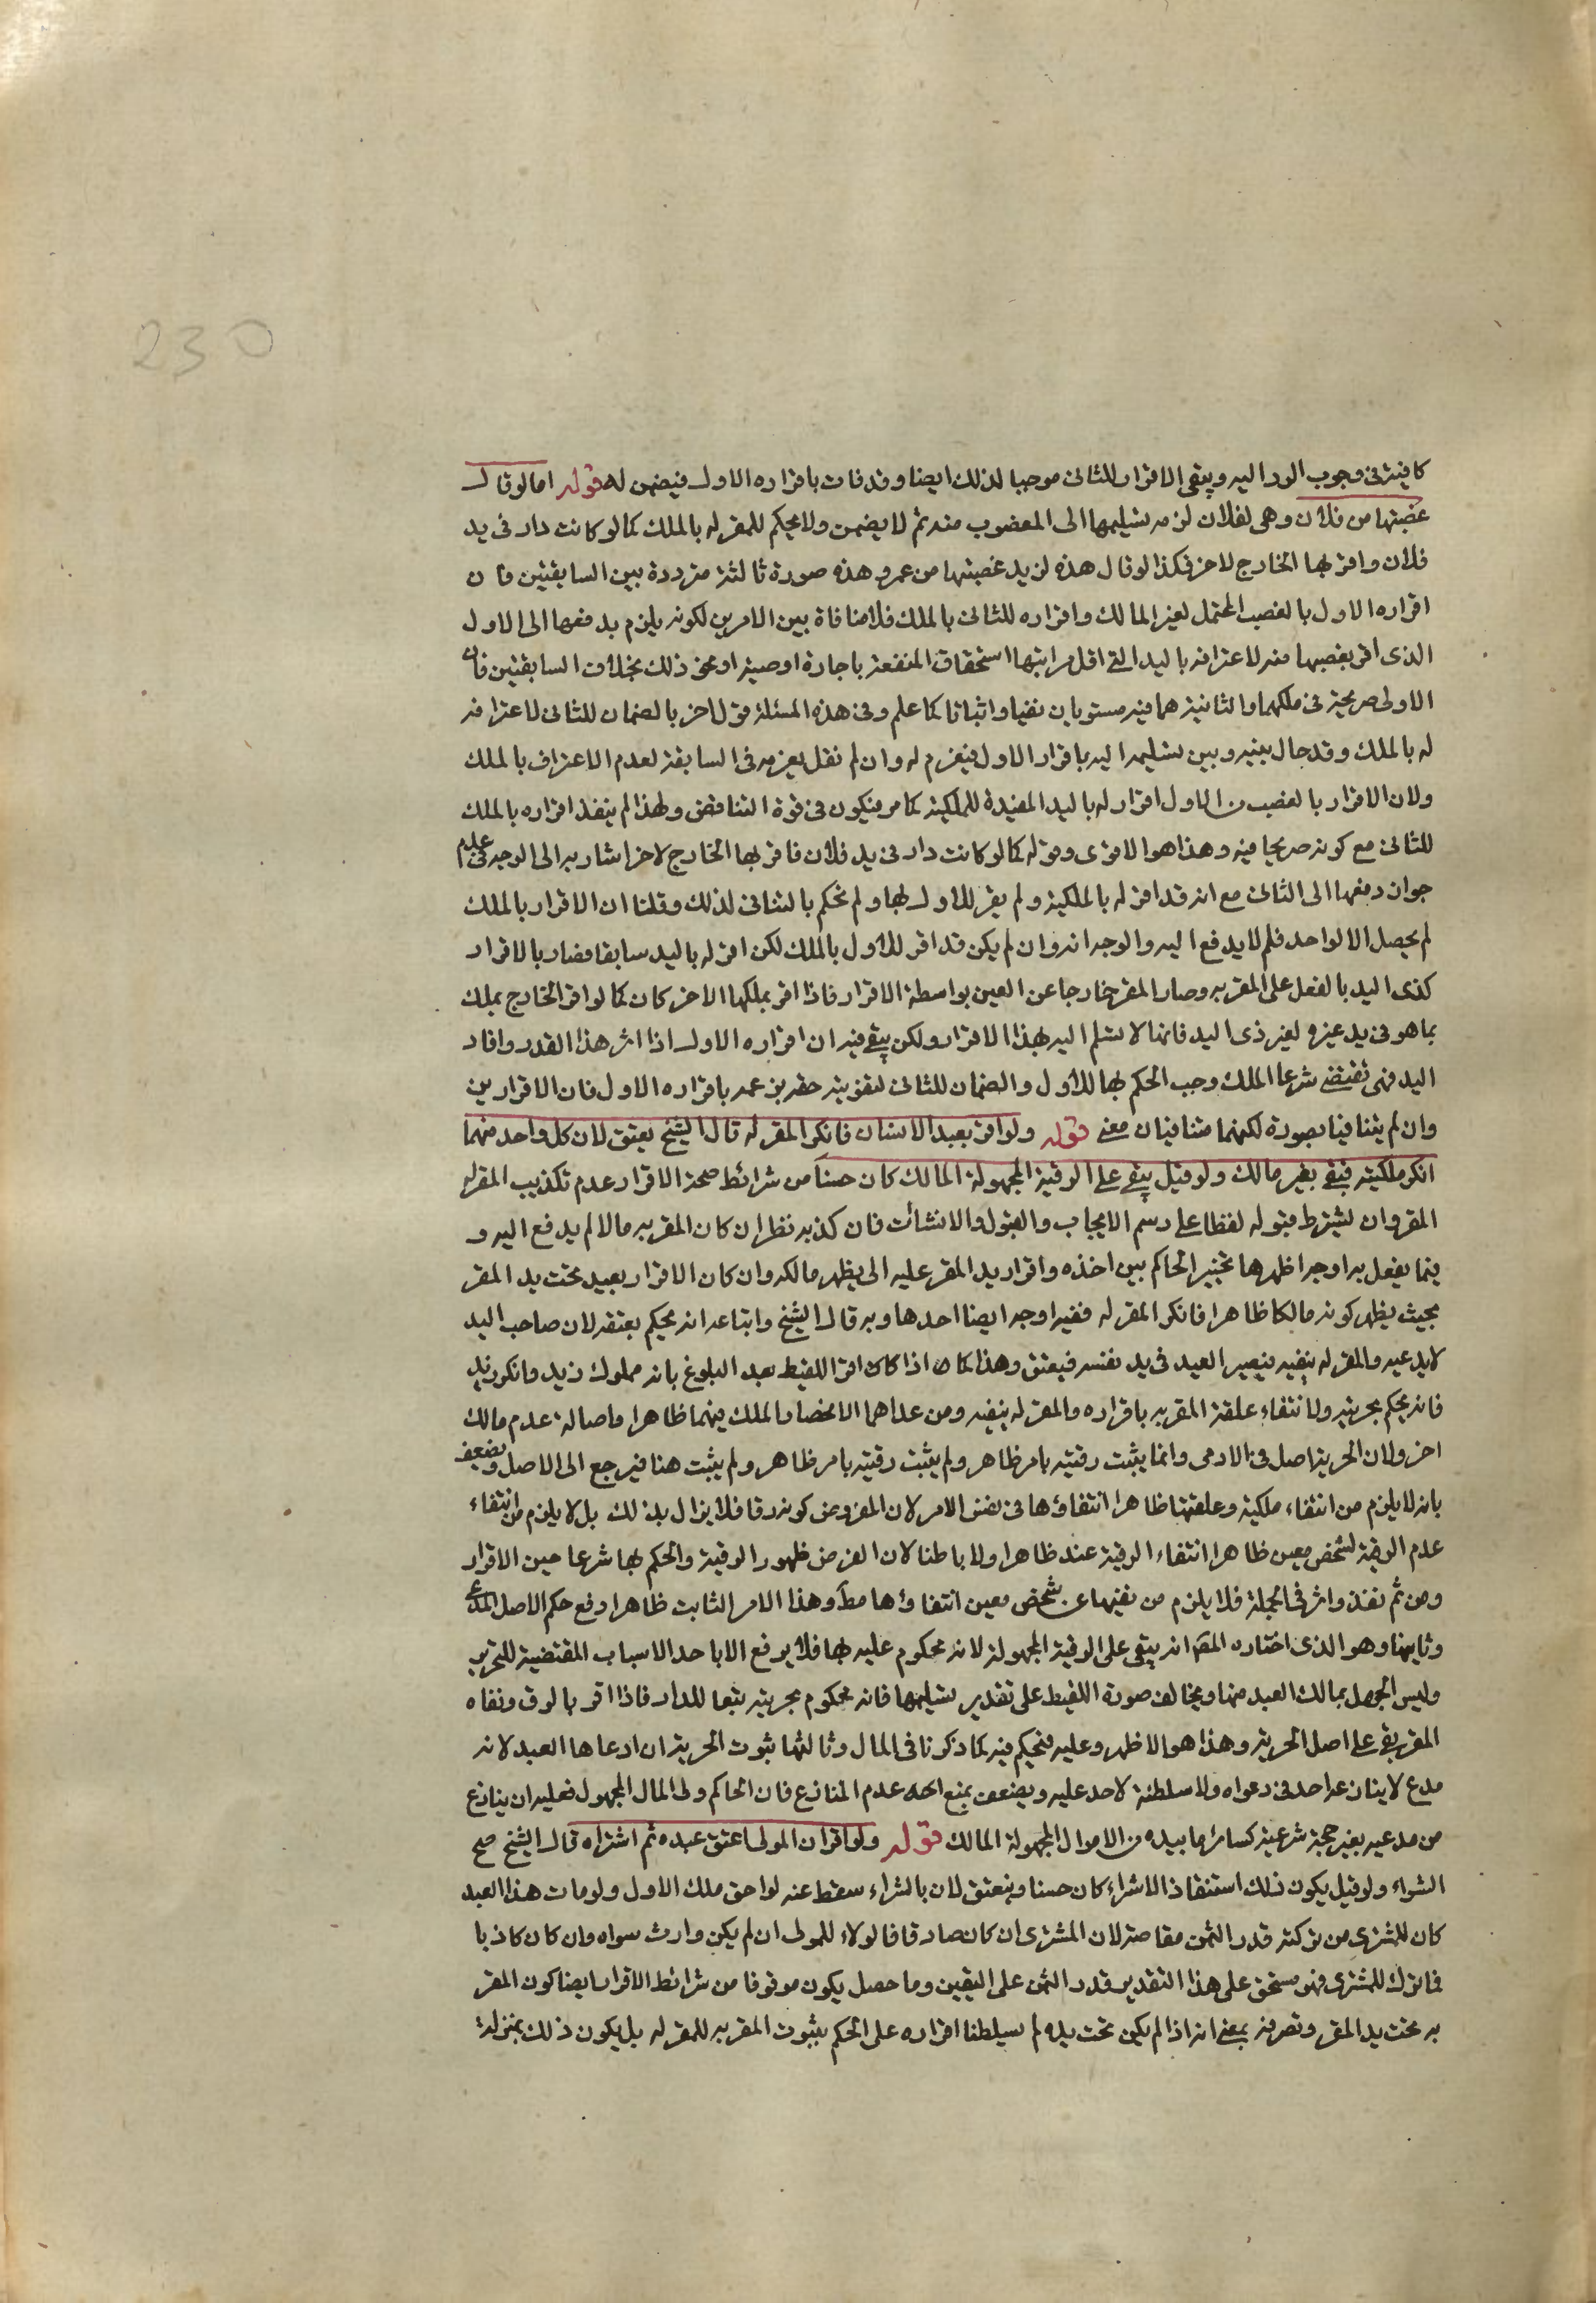 230
كافية في وجوب الرد اليه ويبقى الاقرار للثاني موجبا لذلك ايضا وقد فات باقراره الاول فيضمن له قوله اما لو قال
غصبتها من فلان وهي لفلان لزمه تسليمها الى المغصوب منه ثم لا يضمن ولا يحكم للمقر له بالملك كما لو كانت دار في يد
فلان واقر بها الخارج لاخر فكذا لو قال هذه لزيد غصبتها من عمرو هذه صورة ثالثة مترددة بين السابقتين فان
اقراره الاول بالغصب المحتمل لغير المالك واقراره للثاني بالملك فلا منافاة بين الامرين لكونه يلزم بدفعها الى الاول
الذى اقر بغصبها منه لاعترافه باليد التي اقل مراتبها استحقاق المنفعة باجارة او وصية او نحو ذلك بخلاف السابقتين فان
الاولى صريحة في ملكهما والثانية هما فيه مستويان نفيا واثباتا كما علم وفي هذه المسئلة قول اخر بالضمان للثاني لاعترافه
له بالملك وقد حال بينه وبين تسليمه اليه باقرار الاول فيغرم له وان لم نقل بغرمه في السابقة لعدم الاعتراف بالملك
ولان الاقرار بالغصب من الاول اقرار له باليد المفيدة للملكية كما مر فيكون في قوة التناقض ولهذا لم ينفذ اقراره بالملك
للثاني مع كونه صريحا فيه وهذا هو الاقوى وقوله كما لو كانت دار في يد فلان فاقر بها الخارج لاخر اشار به الى الوجه في عدم
جواز دفعها الى الثاني مع انه قد اقر له بالملكية ولم يقر للاول بها ولم نحكم بالتنافى لذلك وقلنا ان الاقرار بالملك
لم يحصل الا لواحد فلم لا يدفع اليه والوجه انه وان لم يكن قد اقر للاول بالملك لكن اقر له باليد سابقا فصار بالاقرار
كذى اليد بالفعل على المقر به وصار المقر خارجا عن العين بواسطة الاقرار فاذا اقر بملكها الاخر كان كما لو اقر الخارج بملك
بما هو في يد غيره لغير ذى اليد فانها لا تسلم اليه بهذا الاقرار ولكن يبقى فيه ان اقراره الاول اذا اثر هذا القدر وافاد
اليد فهي تقتضي شرعا الملك وجب الحكم بها للاول والضمان للثاني لتفويته حقه بزعمه باقراره الاول فان الاقرارين
وان لم يتنافيا بصورة لكنهما متنافيان معنى قوله ولو اقر بعبد الانسان فانكر المقر له قال الشيخ يعتق لان كل واحد منهما
انكر ملكيته فبقي بغير مالك ولو قيل يبقى على الرقية المجهولة المالك كان حسنا من شرائط صحة الاقرار عدم تكذيب المقر له
المقر وان لم يشترط قبوله لفظا على رسم الايجاب والقبول والانشاآت فان كذبه نظر ان كان المقر به مالا لم يدفع اليه و
فيما يفعل به اوجه اظهرها تخيير الحاكم بين اخذه واقرار يد المقر عليه الى يظهر مالكه وان كان الاقرار بعبد تحت يد المقر
بحيث يظهر كونه مالكا ظاهرا فانكر المقر له ففيه اوجه ايضا احدها وبه قال الشيخ واتباعه انه يحكم بعتقه لان صاحب اليد
لا يدعيه والمقر له ينفيه فيصير العبد في يد نفسه فيعتق وهذا كما اذا كان اقر اللقيط بعد البلوغ بانه مملوك زيد وانكر زيد
فانه يحكم بحريته ولانتفاء علقة المقر به باقراره والمقر له بنفيه ومن عداهما الانحصار الملك فيهما ظاهرا واصالة عدم مالك
اخر ولان الحرية اصل في الادمى وانما يثبت رقيته بامر ظاهر ولم يثبت رقيته بامر ظاهر ولم يثبت هنا فيرجع الى الاصل ويضعف
بانه لا يلزم من انتفاء ملكية وعلقتها ظاهرا انتفاؤها في نفس الامر لان المفروض كونه رقا فلا يزال بذلك بل لا يلزم من انتفاء
عدم الرقية لشخص معين ظاهرا انتفاء الرقية عنه ظاهرا ولا باطنا لان الفرض ظهور الرقية والحكم بها شرعا حين الاقرار
ومن ثم نفذ واثر في الجملة فلا يلزم من نفيها عن شخص معين انتفاؤها مط وهذا الامر الثابت ظاهرا دفع حكم الاصل المدعى
وثانيها وهو الذى اختاره المص انه يبقى على الرقية المجهولة لانه محكوم عليه بها فلا يرفع الا باحد الاسباب المقتضية للتحرير
وليس الجهل بمالك العبد منها ويخالف صورة اللقيط على تقدير تسليمها فانه محكوم بحريته تبعا للدار فاذا اقر بالرق ونفاه
المقر بقى على اصل الحرية وهذا هو الاظهر وعليه فيحكم فيه كما ذكرنا في المال وثالثها ثبوت الحرية ان ادعاها العبد لانه
مدع لا ينازعه احد في دعواه ولا سلطنة لاحد عليه ويضعف بمنع عدم المنازع فان الحاكم ولى المال المجهول فعليه ان ينازع
من مدعيه بغير حجة شرعية كسائر ما بيده من الاموال المجهولة المالك قوله ولو اقر ان المولى اعتق عبده ثم اشتراه قال الشيخ صح
الشراء ولو قيل يكون ذلك استنقاذا لا شراء كان حسنا وينعتق لان بالشراء سقط عنه لواحق ملك الاول ولو مات هذا العبد
كان للمشترى من تركته قدر الثمن مقاصة لان المشترى ان كان صادقا فالولاء للمولى ان لم يكن وارث سواه وان كان كاذبا
فما ترك للمشترى فهو مستحق على هذا التقدير قدر الثمن على اليقين وما حصل يكون موقوفا من شرائط الاقرار ايضا كون المقر
به تحت يد المقر وتصرفه بمعنى انه اذا لم يكن تحت يده لم يسلطنا اقراره على الحكم بثبوت المقر به للمقر له بل يكون ذلك بمنزلة